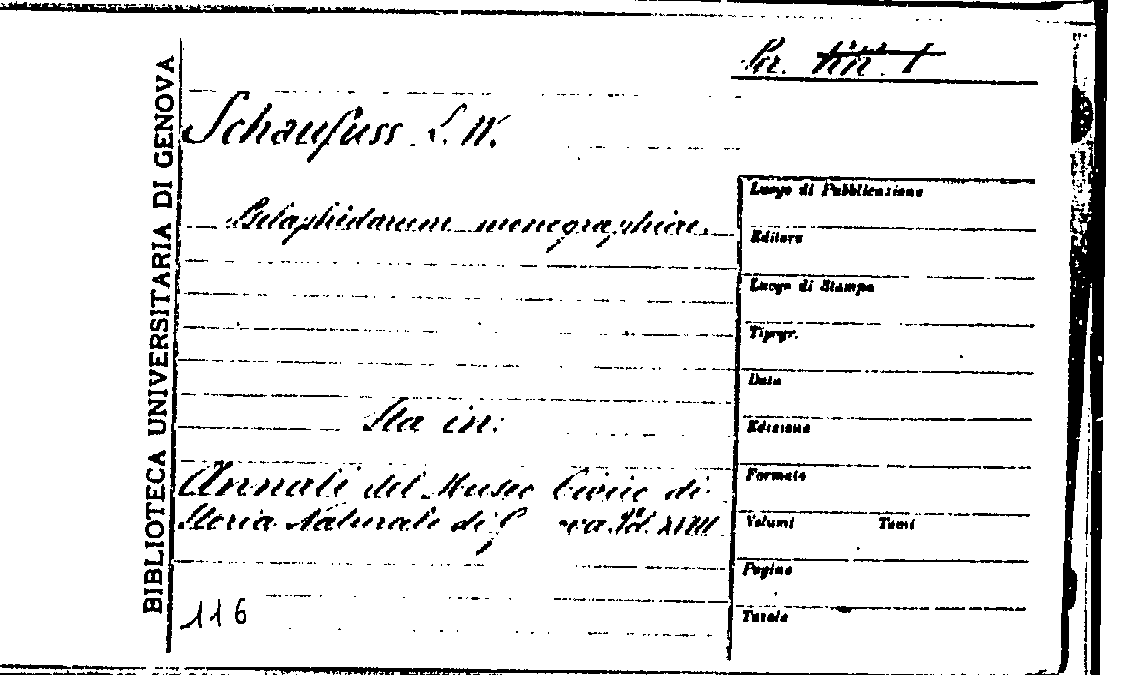 BIBLIOTECA UNIVERSITARIA DI GENOVA
Schaufuss L. W.
Pselaphidarum monographiae.
Sta in:
Annali del Museo Civico di
Storia Naturale di Vol. XVIII
116
Luogo di Pubblicazione
Editore
Luogo di Stampa
Tipogr.
Data
Edizione
Formato
Volumi Tomi
Pagine
Tavole